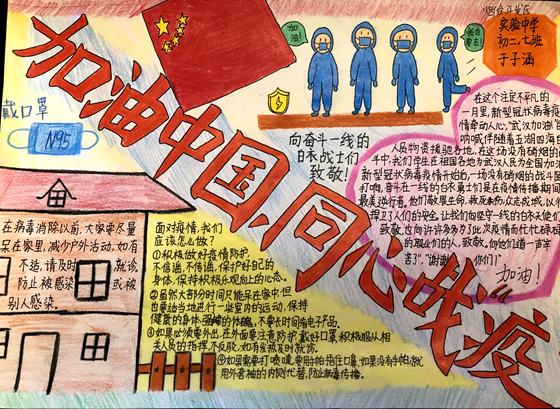 烟台开发区
实验中学
初二、七班
于子涵
加油
我也要去!
加油中国,同心战“疫”
戴口罩
N95
向奋斗一线的
白衣战士们
致敬!
在这个注定不平凡的
一月里,新型冠状病毒疫
情牵动人心,“武汉加油”的
呐喊伴随着五湖四海的
人员物资援驰各地,在这场没有硝烟的战
斗中,我们学生在祖国各地为武汉人民为全国加油
新型冠状病毒疫情开始后,一场没有硝烟的战斗图
打响,奋斗一线的白衣勇士们是在疫情传播期间
最美逆行者,他们敬畏生命,救死扶伤,众志成城,以行
捍卫了人们的安全,让我们向坚守一线的白衣天使们
致敬,也向许许多多为了此次疫情而忙忙碌碌
的职业们的人,致敬,向他们道一声辛
苦了”,“谢谢
你们!”
加油!
在病毒消除以前,大家要尽量
呆在家里,减少户外活动,如有
不适,请及时
就诊
防止被感染
或被
别人感染。
面对疫情,我们
应该怎么做?
①积极做好疫情防护,
不信谣,不传谣,保护好自己的
身体,保持积极乐观向上的心态。
②虽然大部分时间只能呆在家中,但
也要适当地进行一些室内的运动,保持
健康的身体
,不要长时间看电子产品。
③如果必须要外出,在外面要注意防护,戴好口罩,积极服从相
关人员的指挥,不反抗,如有发热及时就诊。
④如果需要打喷嚏,要用手帕捂住口鼻,如果没有手帕,就
用外套袖的内侧代替,防止病毒传播。